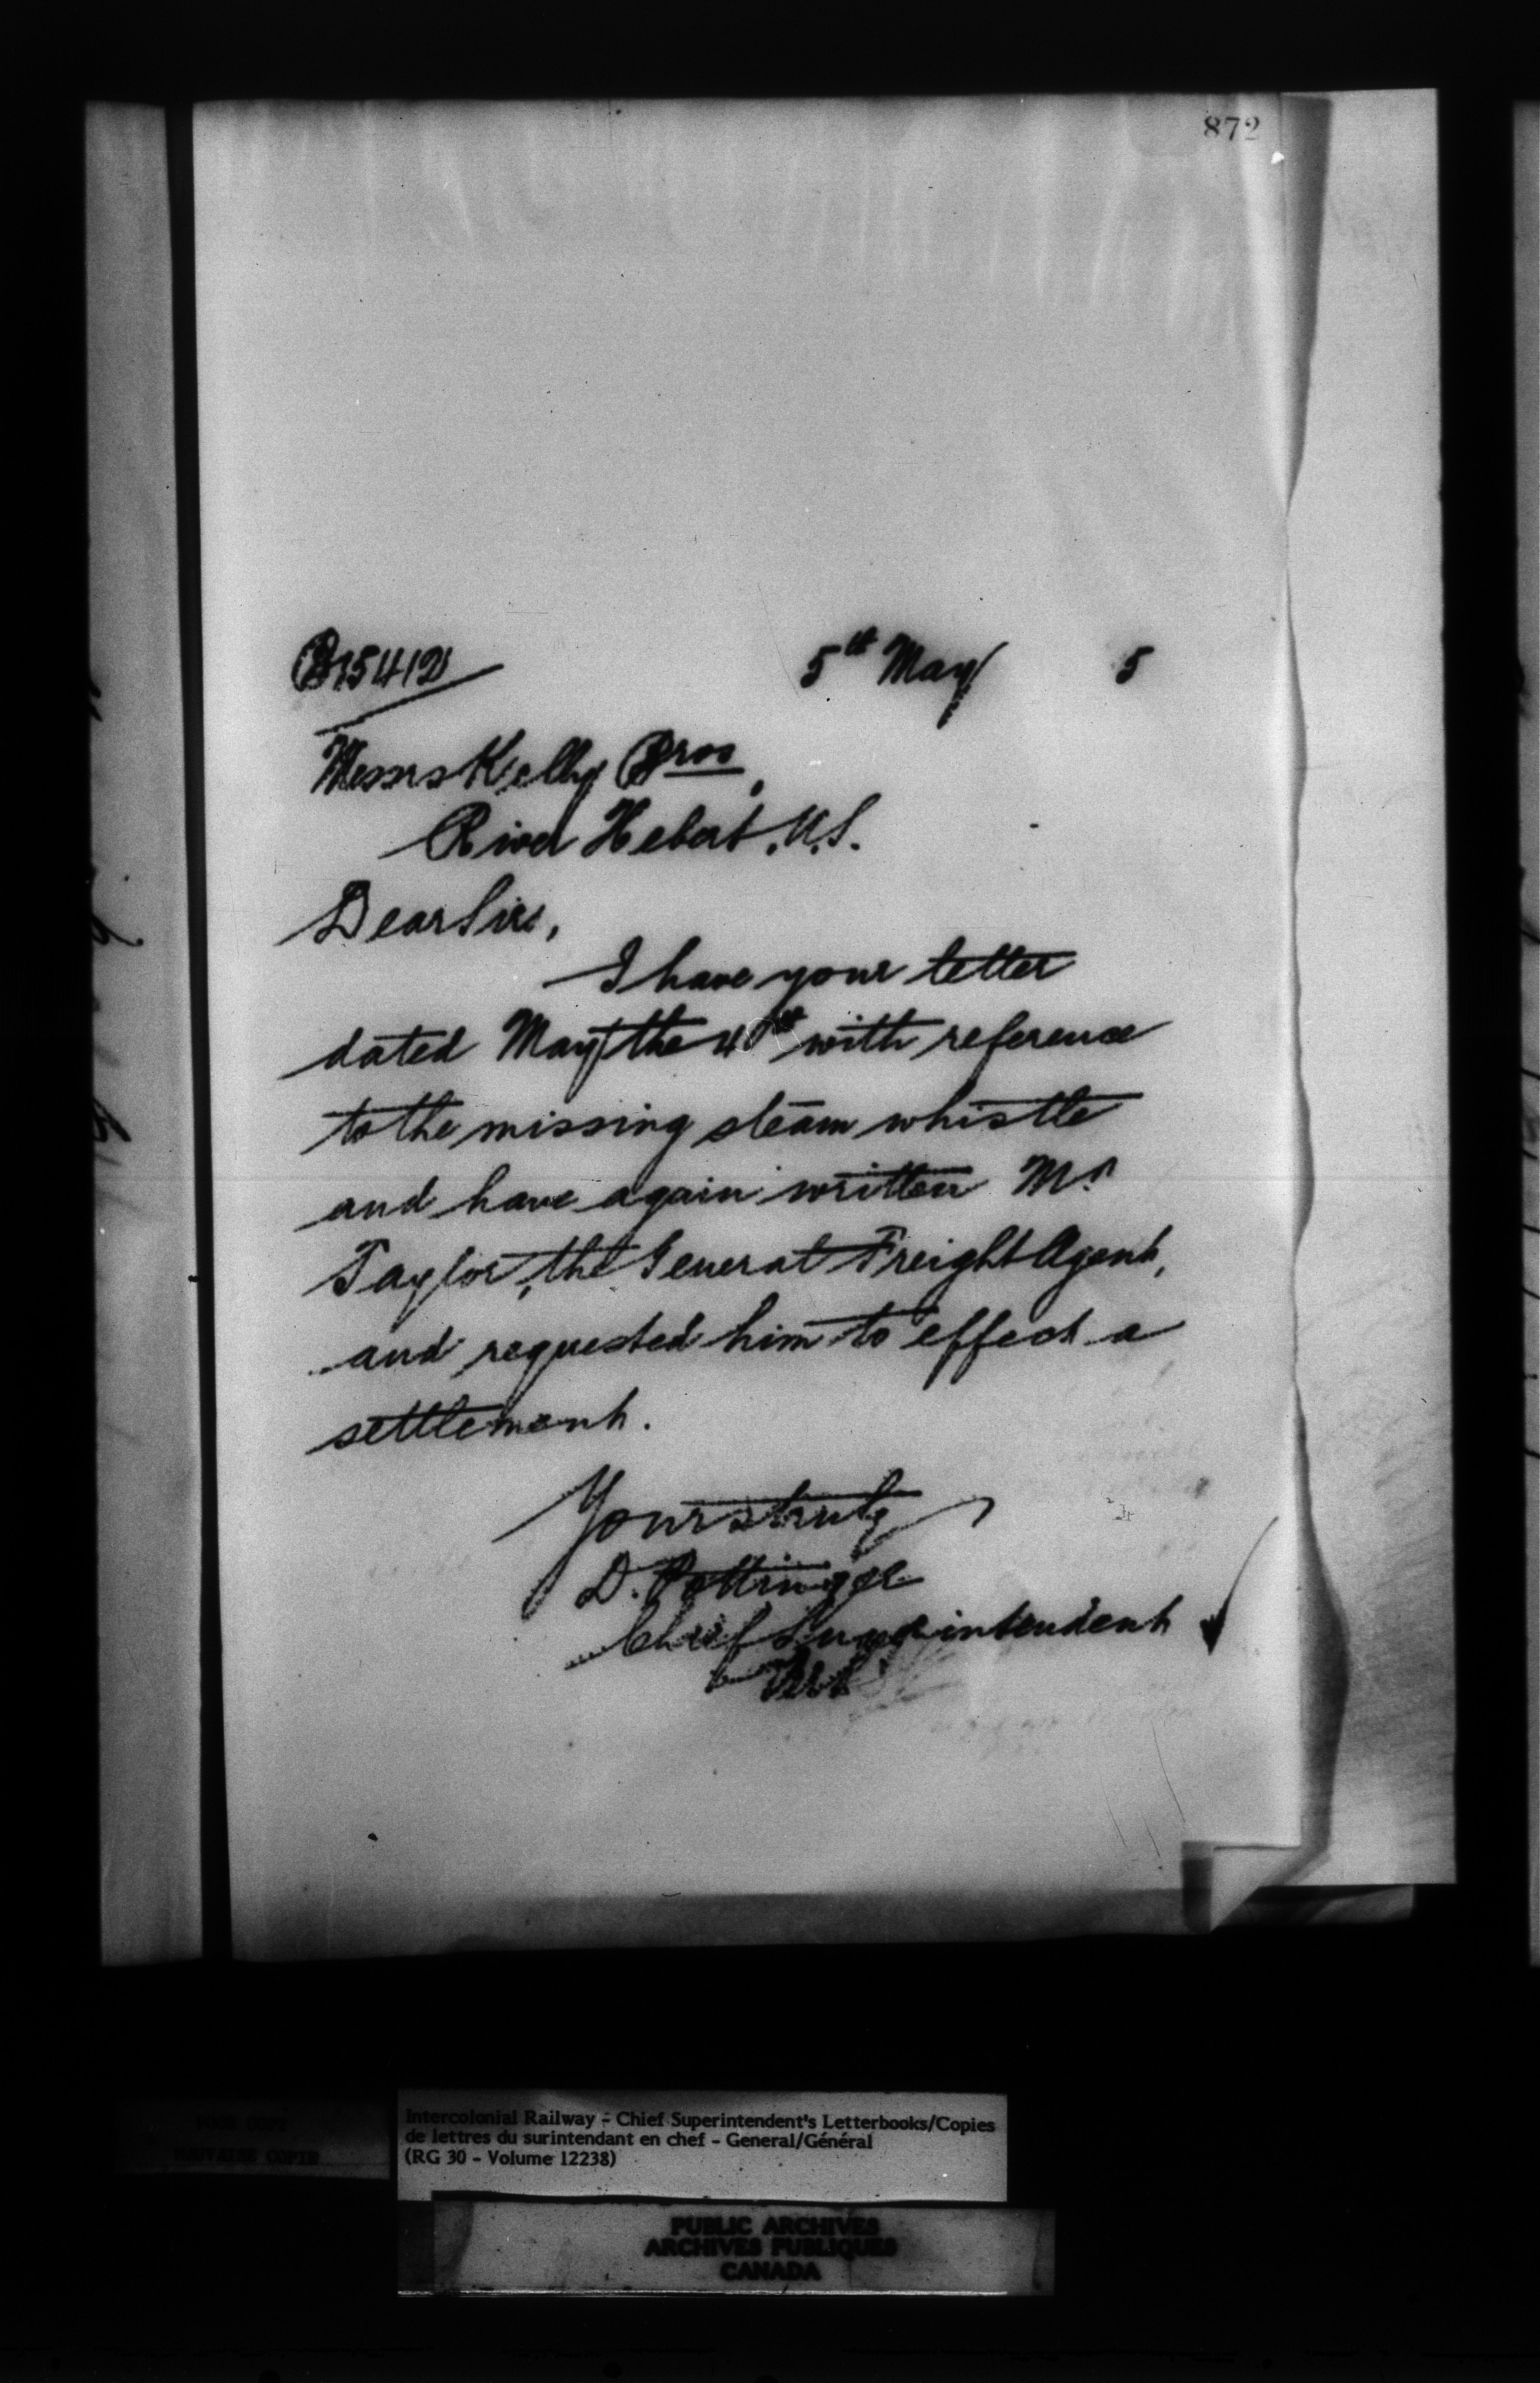 872
B15412
5th May 5
Messrs Kelly Bros,
River Hebert, N.S.
Dear Sirs,
I have your letter
dated May the 4th with reference
to the missing steam whistle
and have again written Mr
Taylor, the General Freight Agent,
and requested him to effect a
settlement.
Yours truly
D. Pottinger
Chief Superintendent
POOR COPY
MAUVAISE COPIE
Intercolonial Railway - Chief Superintendent's Letterbooks/Copies
de lettres du surintendant en chef - General/Général
(RG 30 - Volume 12238)
PUBLIC ARCHIVES
ARCHIVES PUBLIQUES
CANADA